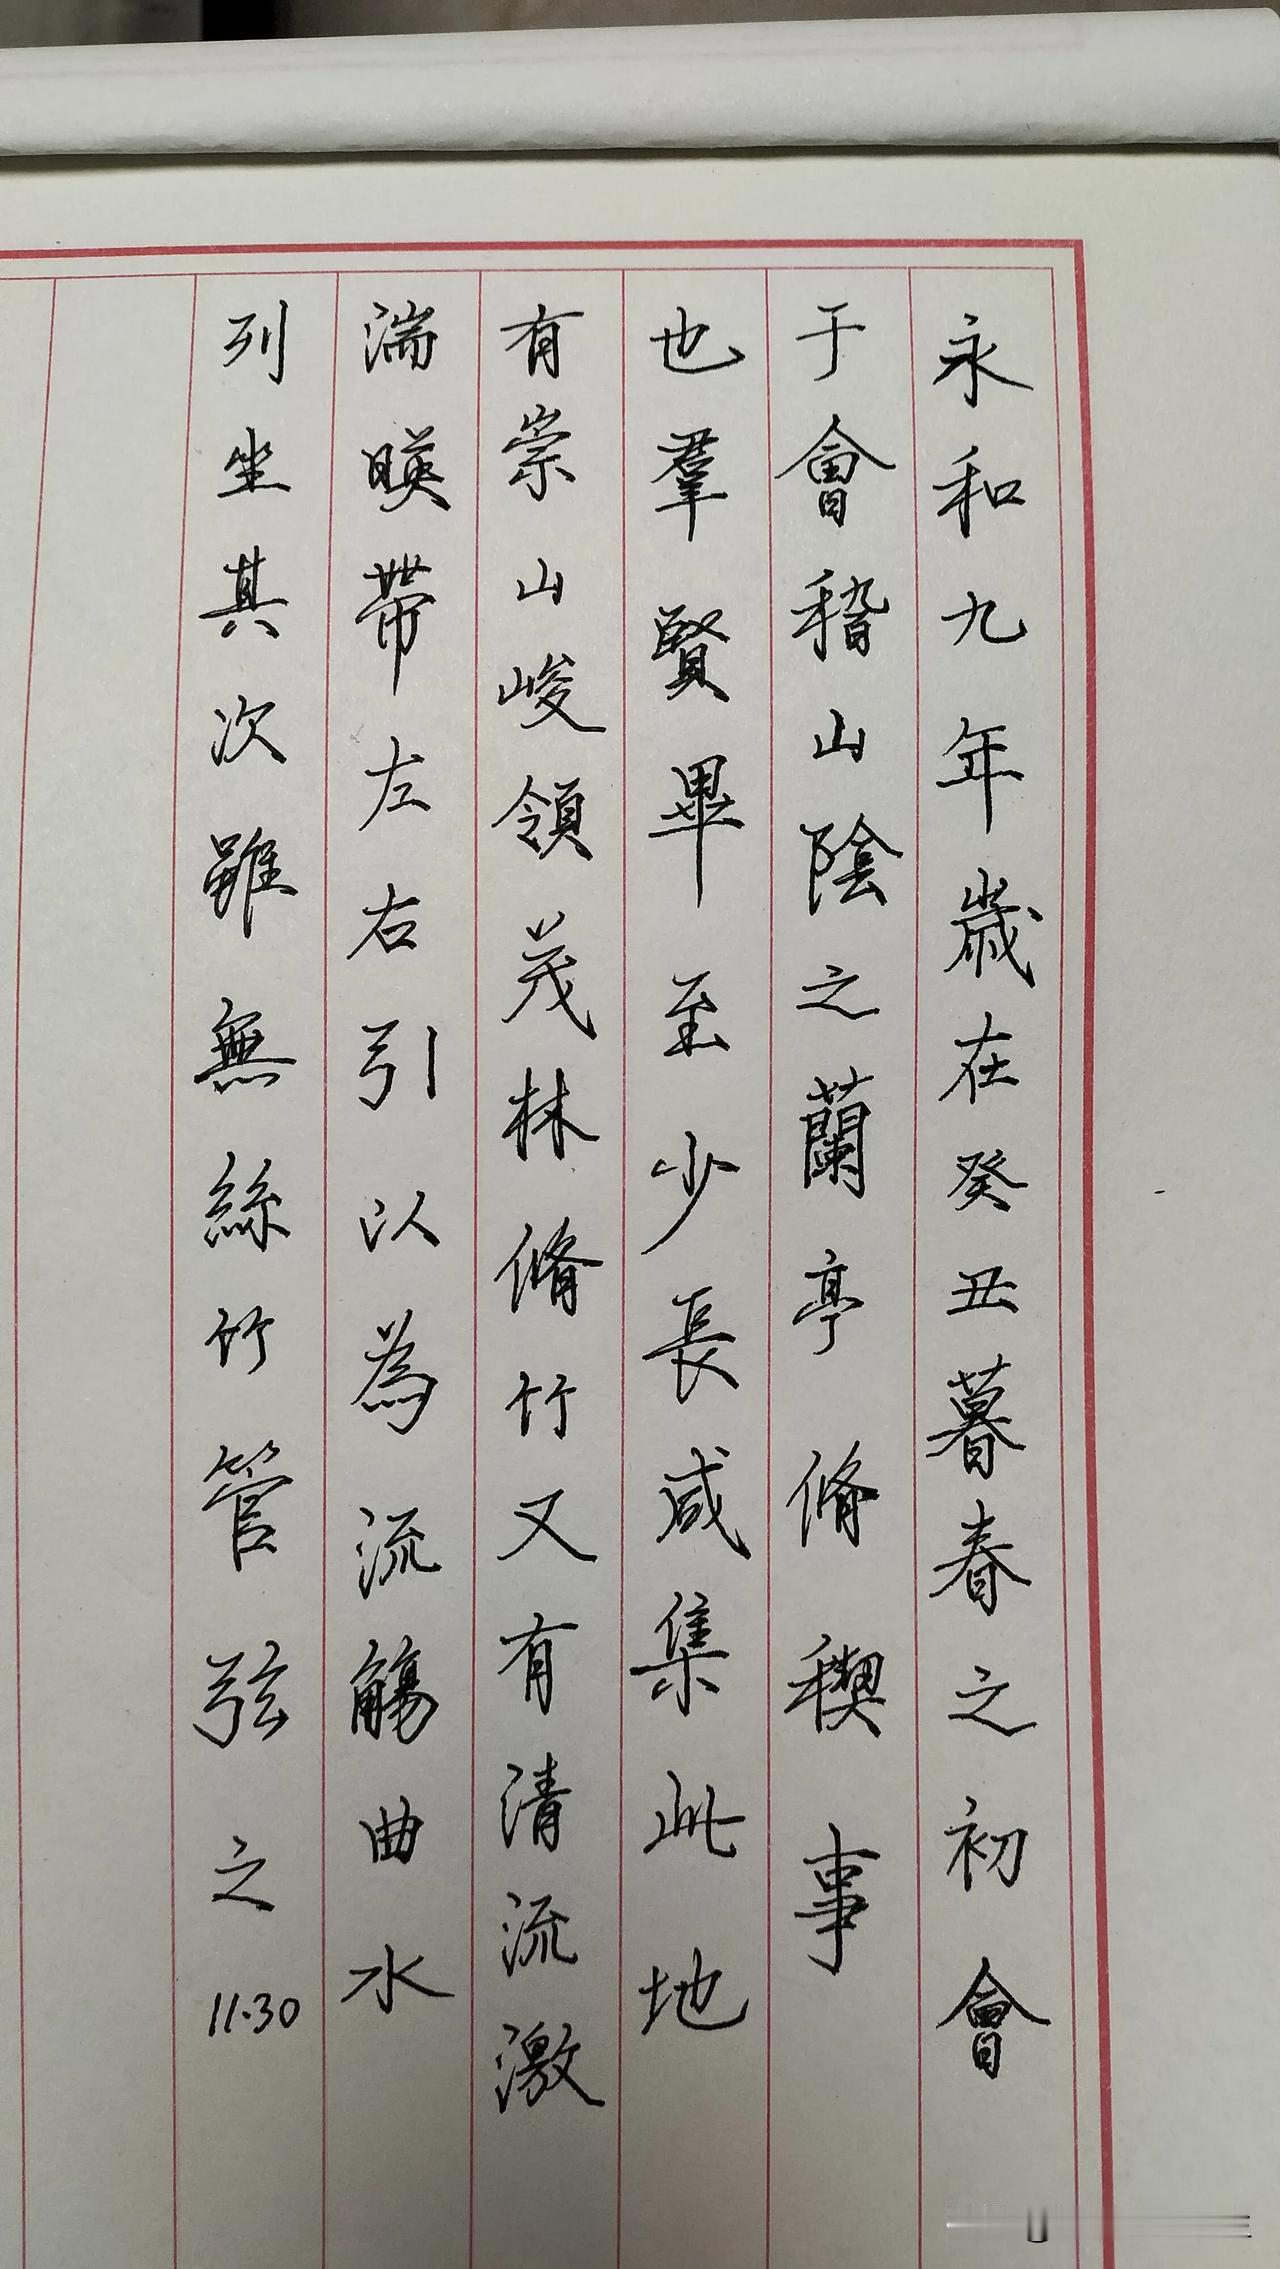 永和九年歲在癸丑暮春之初會
于會稽山陰之蘭亭脩稧事
也羣賢畢至少長咸集此地
有崇山峻領茂林脩竹又有清流激
湍暎帶左右引以為流觴曲水
列坐其次雖無絲竹管弦之
11.30